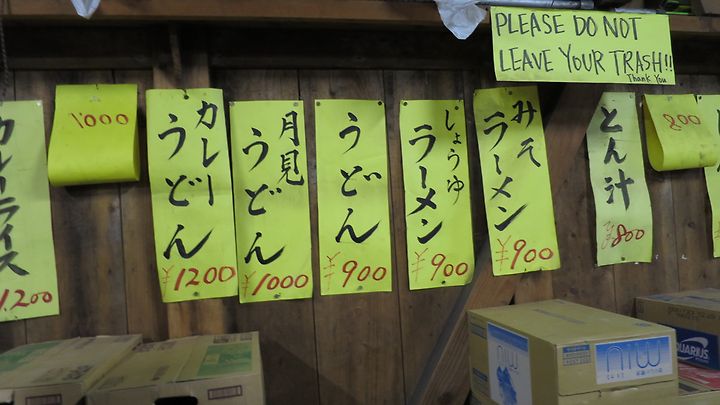 PLEASE DO NOT
LEAVE YOUR TRASH!!
Thank You
カレーライス
1.200
1000
カレー
うどん
¥1200
月見
うどん
¥1000
うどん
¥900
しょうゆ
ラーメン
¥900
みそ
ラーメン
¥900
とん汁
¥800
800
NIW
NIW
QUARIUS